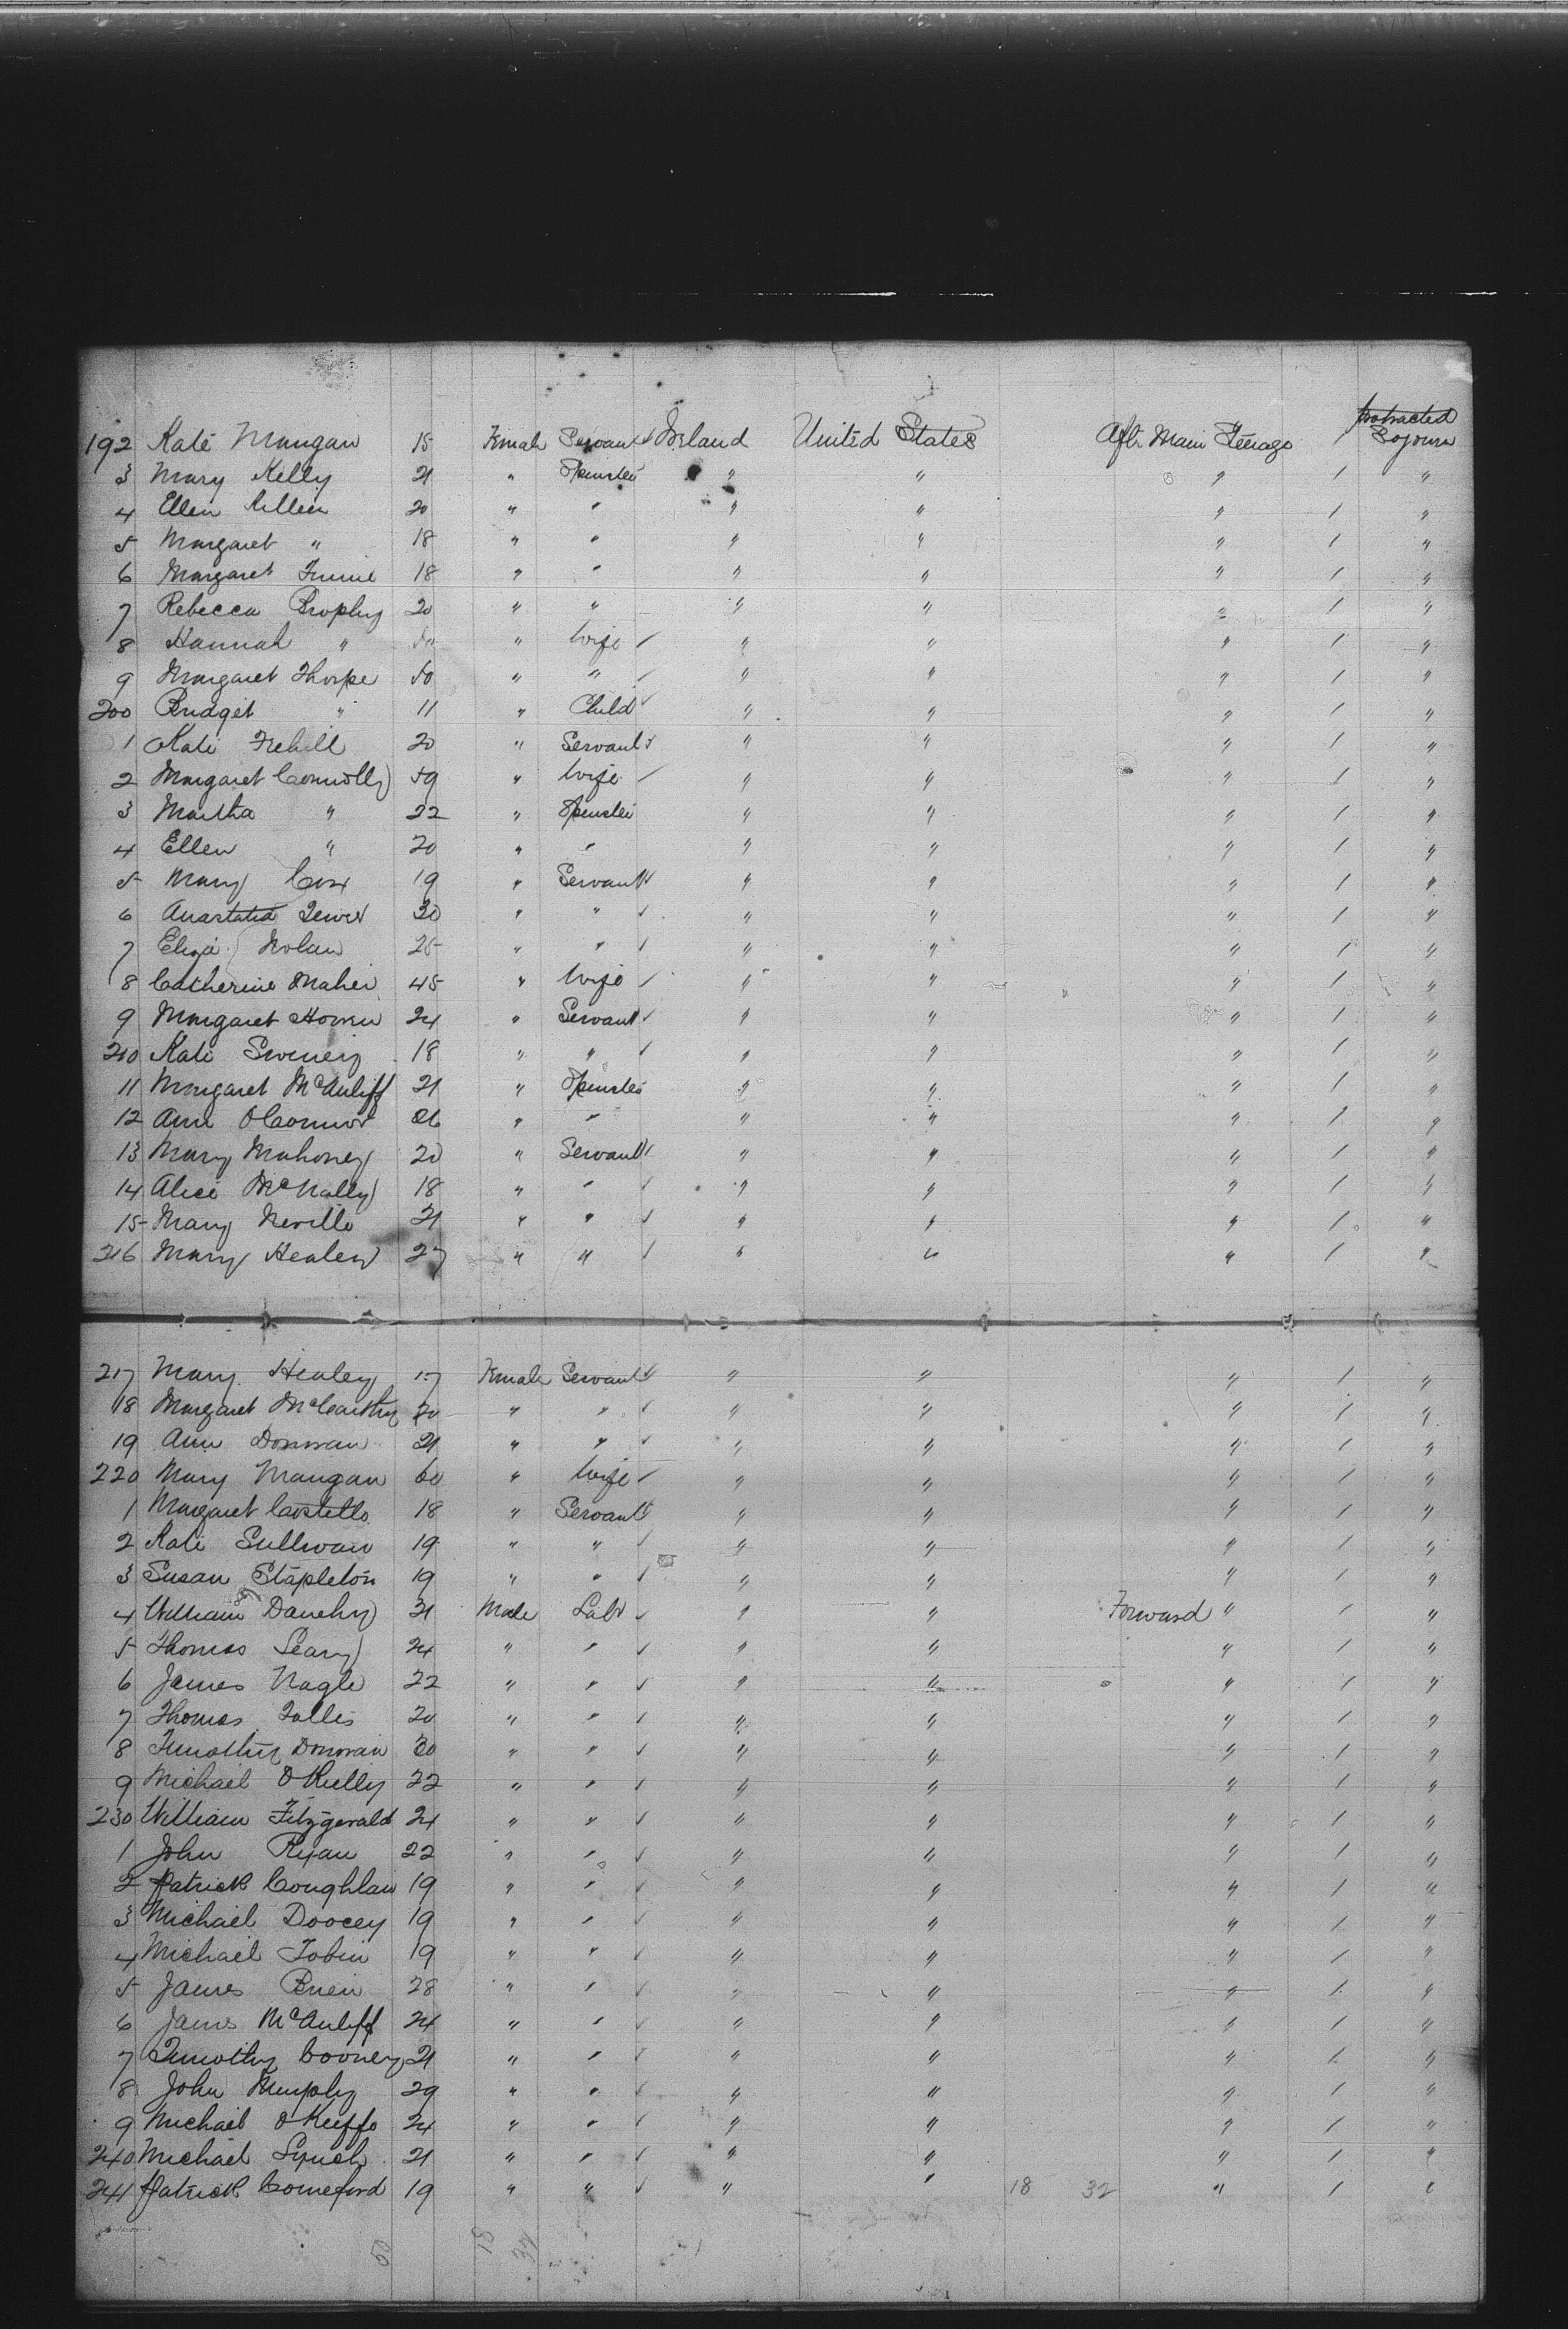 192 Kate Mangan 15 Female Servant ✓ Ireland United States Aft Main Steerage / Protracted Sojourn
3 Mary Kelly 21 " Spinster " " " / "
4 Ellen Killen 20 " " " " " / "
5 Margaret " 18 " " " " " / "
6 Margaret 18 " " " " " / "
7 Rebecca Brophy 20 " " " " " / "
8 Hannah " " Wife ✓ " " " / "
9 Margaret Thorpe 50 " " ✓ " " " / "
200 Bridget " 11 " Child ✓ " " " / "
1 Kate Frehill 20 " Servant ✓ " " " / "
2 Margaret Connolly 59 " Wife ✓ " " " / "
3 Martha " 22 " Spinster " " " / "
4 Ellen " 20 " " " " " / "
5 Mary Cox 19 " Servant ✓ " " " / "
6 Anastatia 30 " " ✓ " " " / "
7 Eliza Nolan 25 " " ✓ " " " / "
8 Catherine Maher 45 " Wife ✓ " " " / "
9 Margaret 24 " Servant ✓ " " " / "
210 Kate Sweeney 18 " " ✓ " " " / "
11 Margaret McAuliff 21 " Spinster " " " / "
12 Ann O'Connor 26 " " " " " / "
13 Mary Mahoney 20 " Servant ✓ " " " / "
14 Alice McNally 18 " " ✓ " " " / "
15 Mary Neville 21 " " ✓ " " " / "
216 Mary Healey 27 " " ✓ " " " / "
217 Mary Healey 17 Female Servant ✓ " " " / "
18 Margaret McCarthy 20 " " ✓ " " " / "
19 Ann Donovan 21 " " ✓ " " " / "
220 Mary Mangan 60 " Wife ✓ " " " / "
1 Margaret Costello 18 " Servant ✓ " " " / "
2 Kate Sullivan 19 " " ✓ " " " / "
3 Susan Stapleton 19 " " ✓ " " " / "
4 William Danehy 21 Male Labr ✓ " " Forward " / "
5 Thomas Leary 24 " " ✓ " " " / "
6 James Nagle 22 " " ✓ " " " / "
7 Thomas 20 " " ✓ " " " / "
8 Timothy Donovan 20 " " ✓ " " " / "
9 Michael O'Kelly 22 " " ✓ " " " / "
230 William Fitzgerald 24 " " ✓ " " " / "
1 John Ryan 22 " " ✓ " " " / "
2 Patrick Coughlan 19 " " ✓ " " " / "
3 Michael Doocey 19 " " ✓ " " " / "
4 Michael Tobin 19 " " ✓ " " " / "
5 James Brien 28 " " ✓ " " " / "
6 James McAuliff 24 " " ✓ " " " / "
7 Timothy Cooney 21 " " ✓ " " " / "
8 John Murphy 29 " " ✓ " " " / "
9 Michael O'Keeffe 24 " " ✓ " " " / "
240 Michael Lynch 21 " " ✓ " " " / "
241 Patrick Comeford 19 " " ✓ " " 18 32 " / "
50 18 32